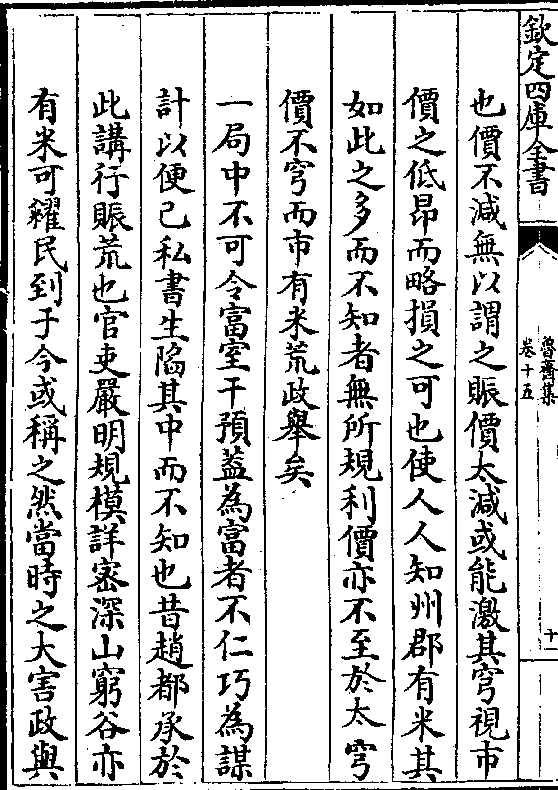 欽定四庫全書
魯齋集
卷十五
十一
也價不減無以謂之賑價太減或能激其穹視市
價之低昂而略損之可也使人人知州郡有米其
如此之多而不知者無所規利價亦不至於太穹
價不穹而市有米荒政舉矣
一局中不可令富室干預葢為富者不仁巧為謀
計以便己私書生陷其中而不知也昔趙都承於
此講行賑荒也官吏嚴明規模詳審深山窮谷亦
有米可糴民到于今或稱之然當時之大害政與